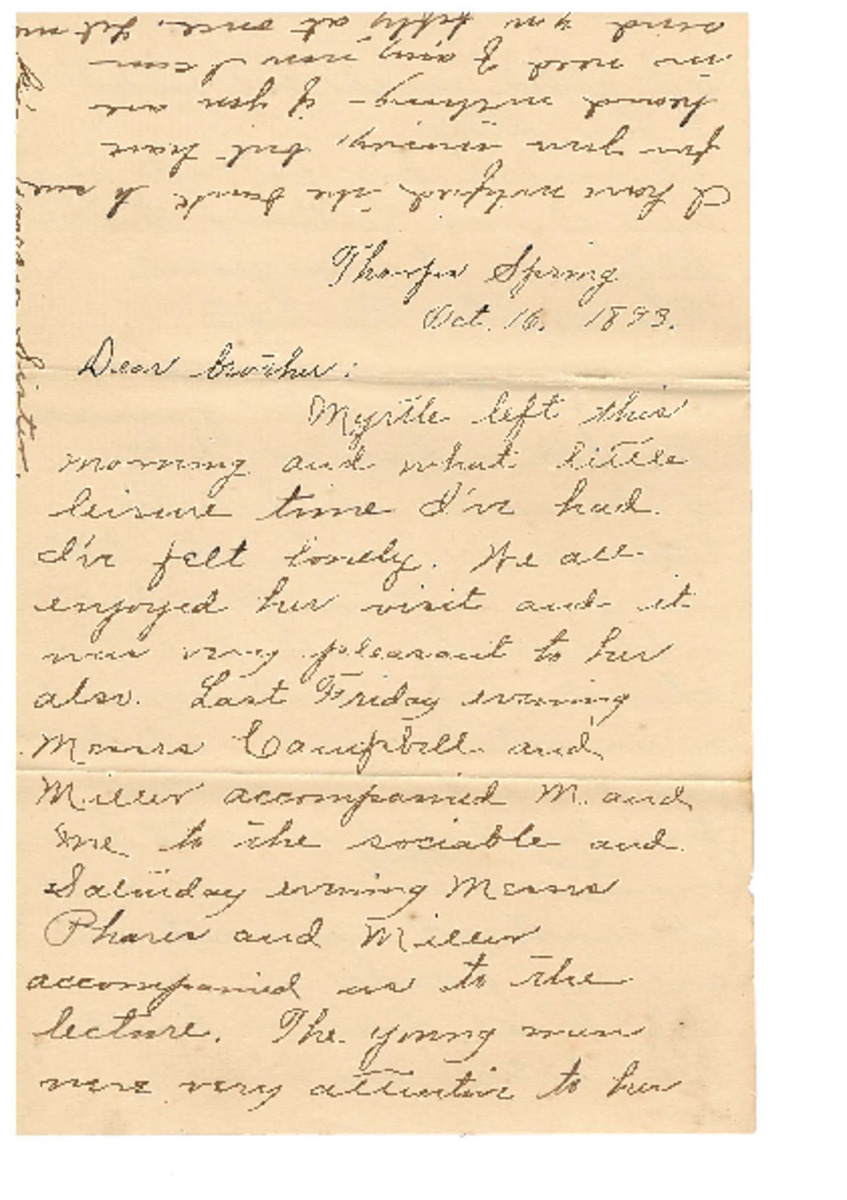 Thorps Spring
Oct. 16. 1893.
Dear brother:
Myrtle left this
morning and what little
leisure time I've had
I've felt lonely. We all
enjoyed her visit and it
was very pleasant to her
also. Last Friday evening
Messrs Campbell and
Miller accompanied M. and
me to the sociable and
Saturday evening Messrs
Phares and Miller
accompanied us to the
lecture. The young men
were very attentive to her
I have notified the bank to send
for your money, but have
heard nothing - if you are
in need of any now I can
send you fifty at once. Let me
sister.